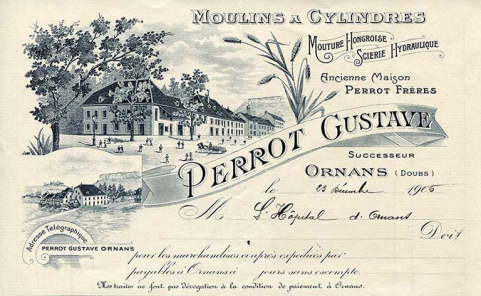 MOULINS A CYLINDRES
MOUTURE HONGROISE
SCIERIE HYDRAULIQUE
Ancienne Maison
PERROT FRÈRES
PERROT GUSTAVE
SUCCESSEUR
ORNANS (DOUBS)
le 23 Décembre 1906
M L'Hôpital d'Ornans
Doit
Adresse Télégraphique
PERROT GUSTAVE ORNANS
pour les marchandises ci après expédiées par
payables à Ornans à jours sans escompte.
Nos traites ne font pas dérogation à la condition de paiement à Ornans.